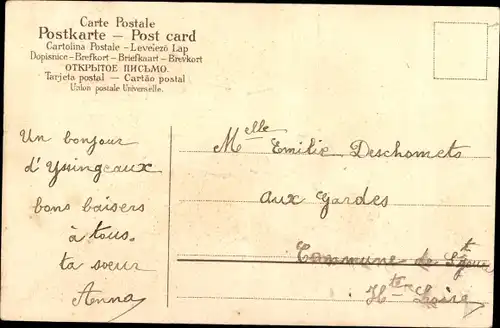 Carte Postale
Postkarte – Post card
Cartolina Postale – Levelező Lap
Dopisnice – Brefkort – Briefkaart – Brevkort
ОТКРЫТОЕ ПИСЬМО.
Tarjeta postal — Cartão postal
Union postale Universelle.
Un bonjour
d'Yssingeaux
bons baisers
à tous.
ta soeur
Anna
Melle Emilie Deschomets
aux Gardes
Commune de St
Hte Loire